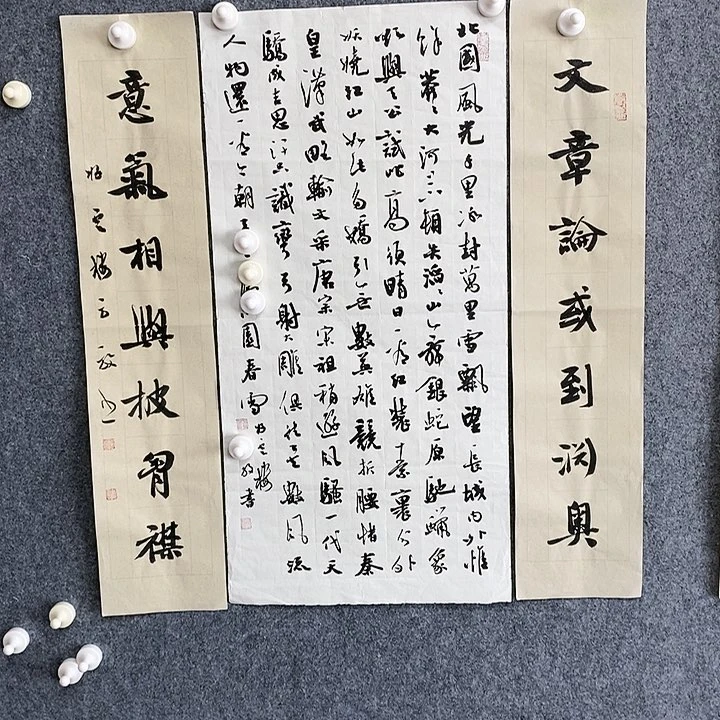 文章論或到淵奧
北國風光千里冰封萬里雪飄望長城内外惟
餘莽〻大河上下頓失滔〻山舞銀蛇原馳蠟象
欲與天公試比高須晴日看紅裝素裹分外
妖嬈江山如此多嬌引無數英雄競折腰惜秦
皇漢武略輸文采唐宗宋祖稍遜風騷一代天
驕成吉思汗只識彎弓射大雕俱往矣數風流
人物還看今朝 園春雪 樓 書
意氣相與披胸襟
樓